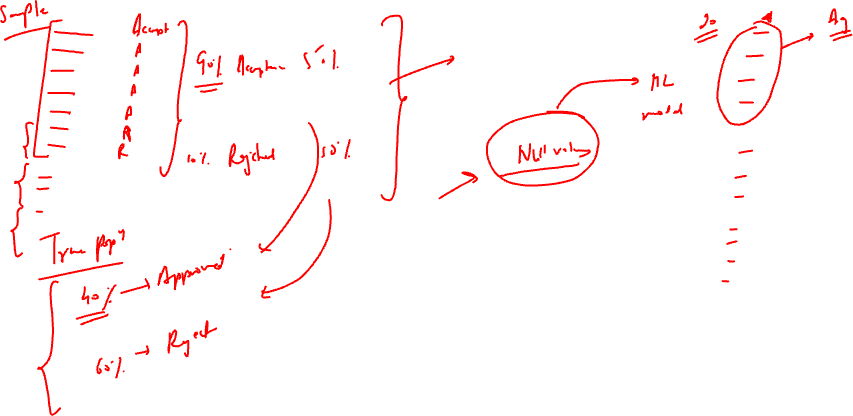 Sample
Accept
A
A
A
A
A
R
R
90% Acceptance 50%
10% Rejected 50%
True popn
40% → Approved
60% → Reject
Null values
ML
model
20
A
Ag